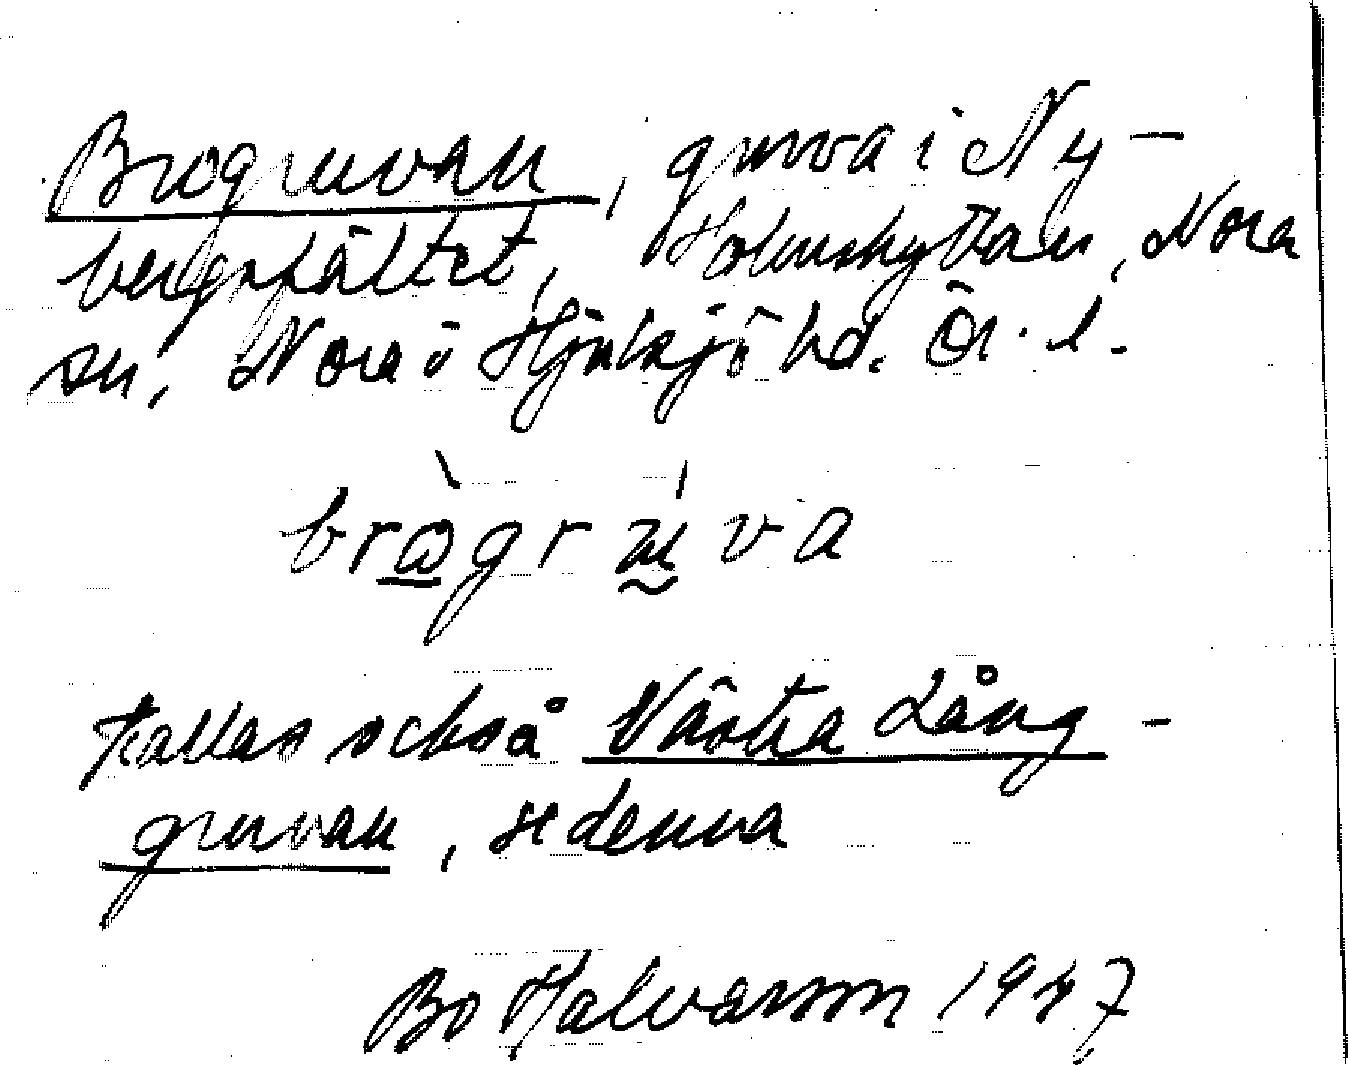 Brogruvan, gruva i Ny-
bergsfältet, Holmshyttan, Nora
sn, Nora o Hjulsjö hd. Ör. l.
kallas också Västra Lång-
gruvan, se denna
Bo Halvarson 1947